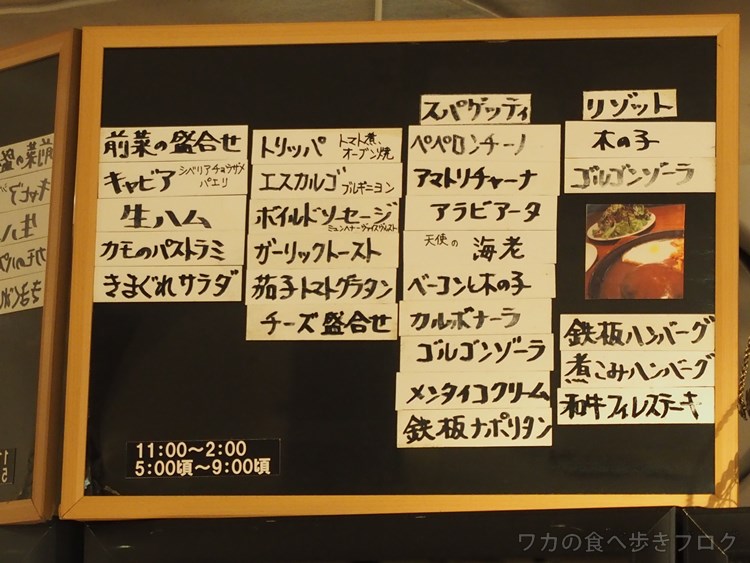 前菜の盛合せ
キャビア シベリアチョウザメ
バエリ
生ハム
カモのパストラミ
きまぐれサラダ
トリッパ トマト煮、
オーブン焼
エスカルゴ ブルギーヨン
ボイルドソーセージ
ミュンヘナーヴァイスヴルスト
ガーリックトースト
茄子トマトグラタン
チーズ盛合せ
スパゲッティ
ペペロンチーノ
アマトリチャーナ
アラビアータ
天使の 海老
ベーコンと木の子
カルボナーラ
ゴルゴンゾーラ
メンタイコクリーム
鉄板ナポリタン
リゾット
木の子
ゴルゴンゾーラ
鉄板ハンバーグ
煮こみハンバーグ
和牛フィレステーキ
11:00〜2:00
5:00頃〜9:00頃
ワカの食べ歩きブログ